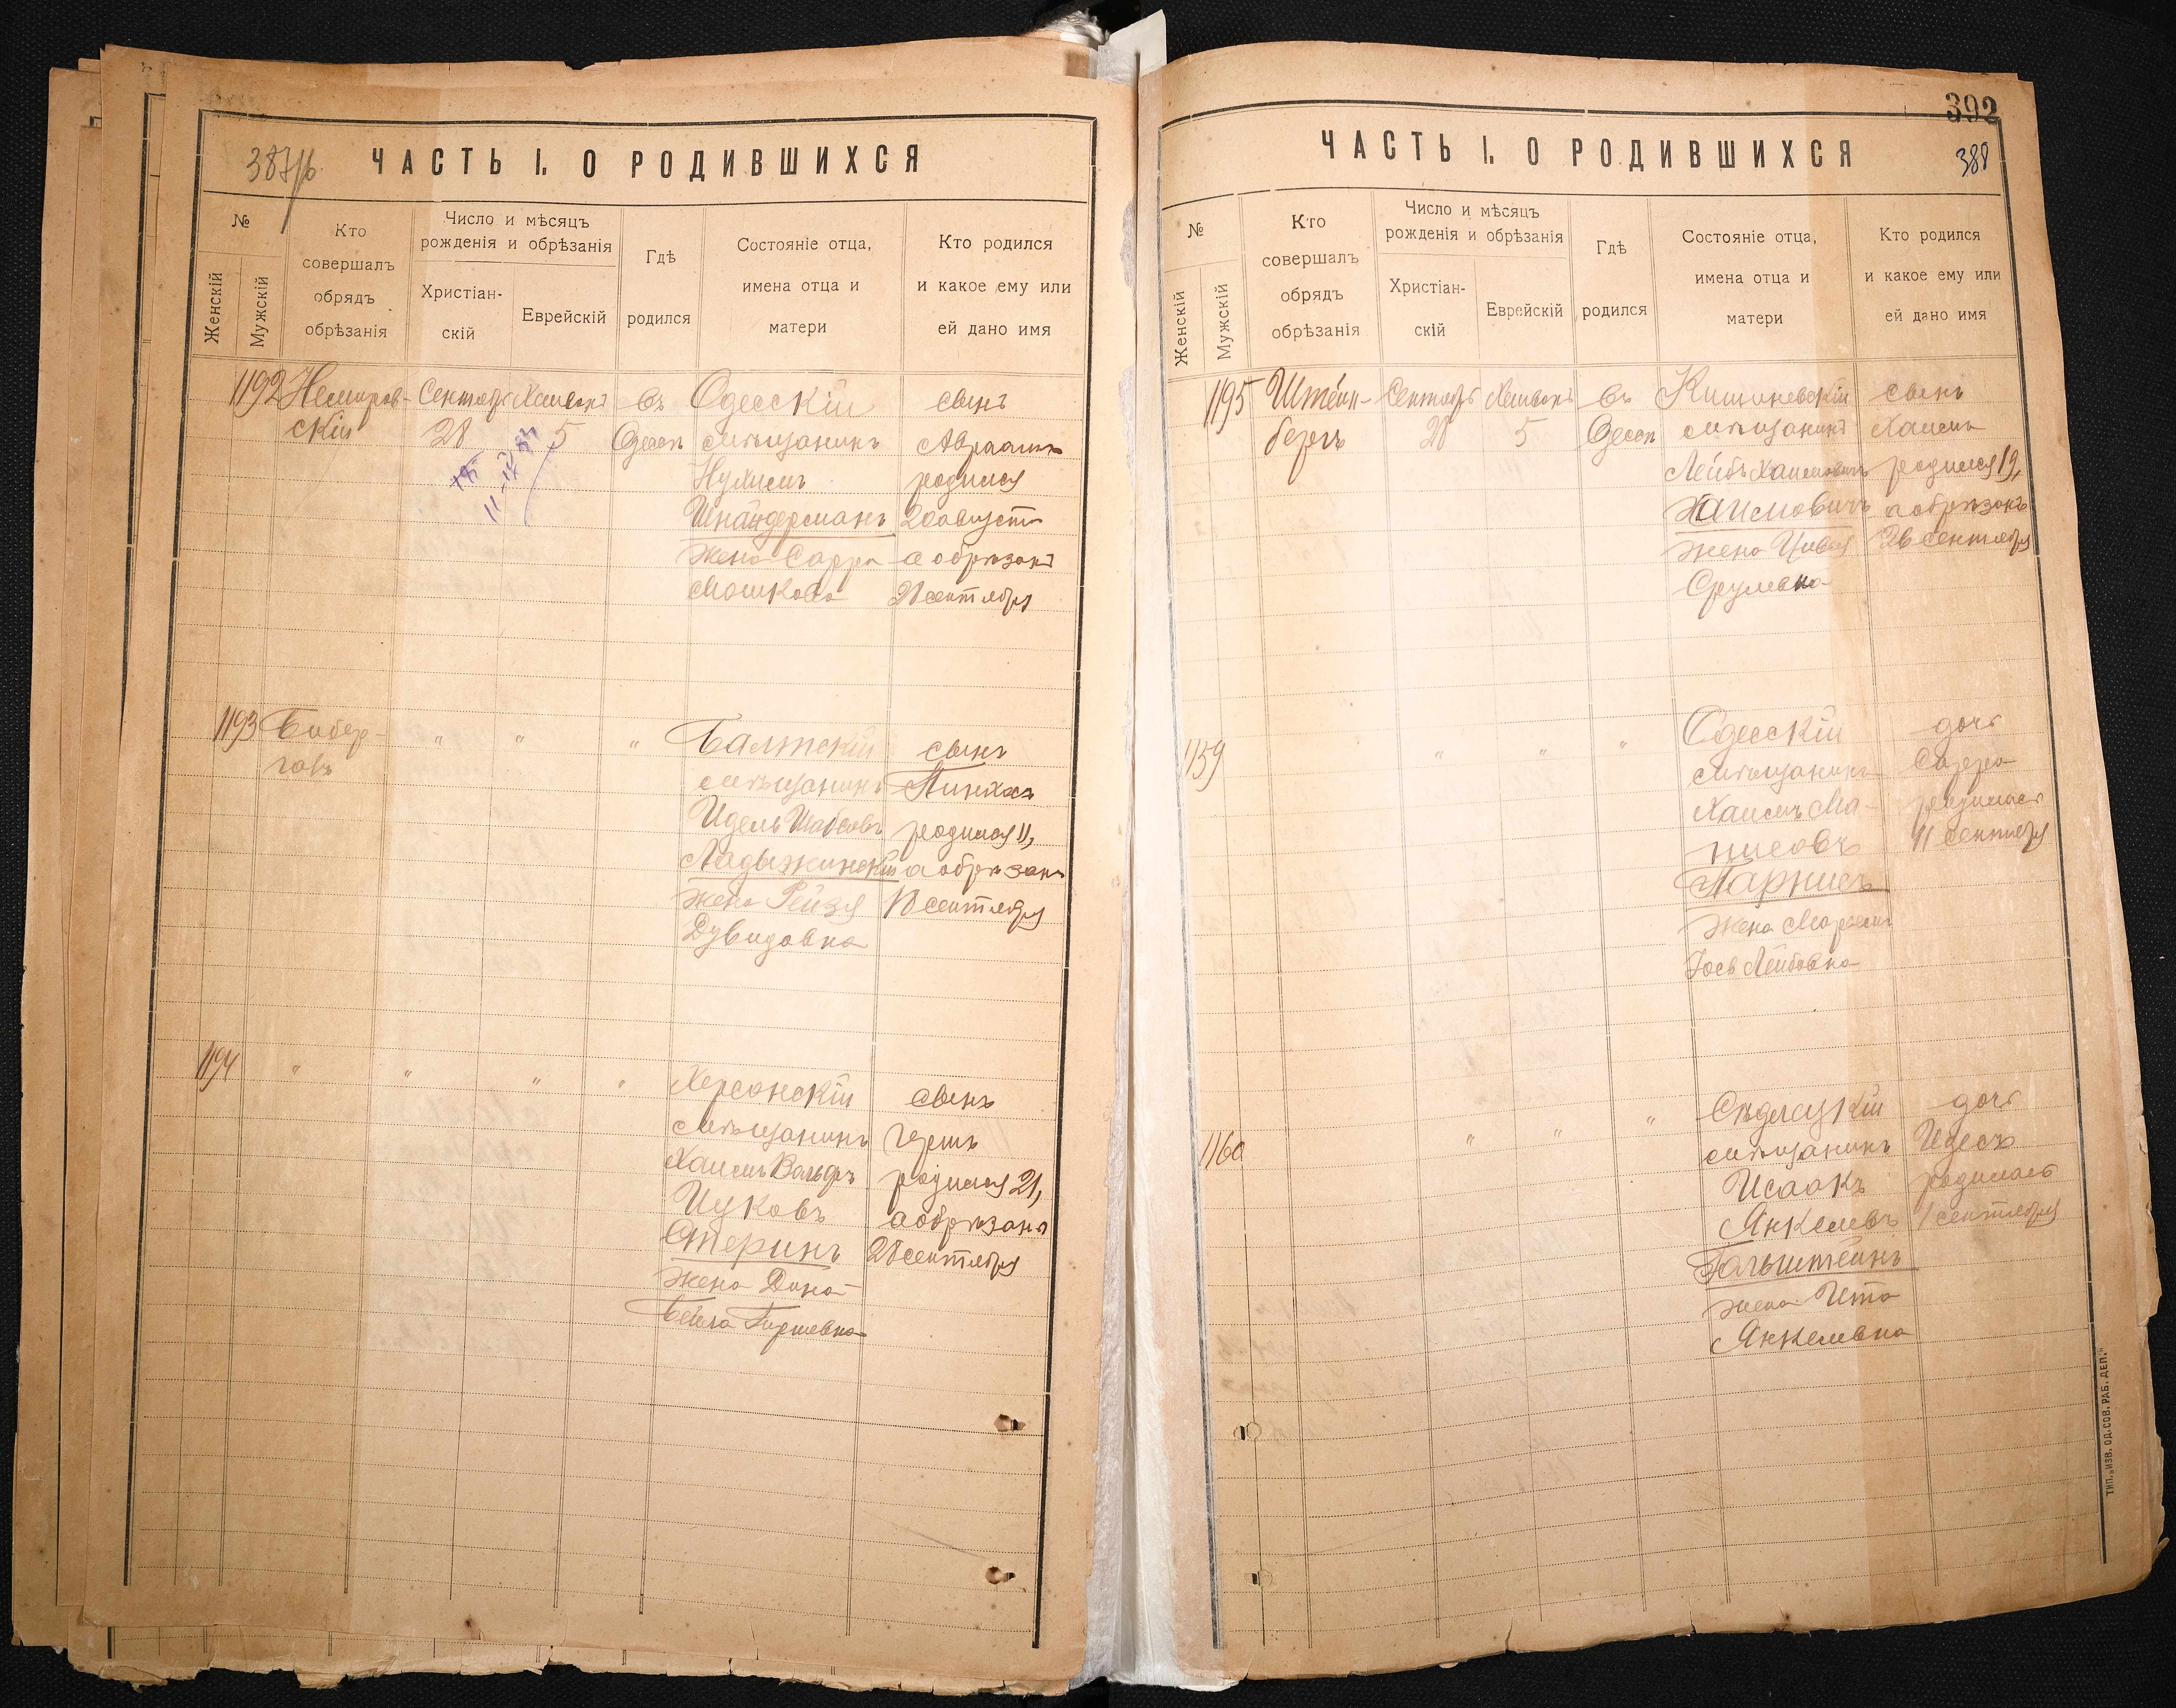 387/б.
ЧАСТЬ I. О РОДИВШИХСЯ
№
Женскій
Мужскій
Кто
совершалъ
обрядъ
обрѣзанія
Число и мѣсяцъ
рожденія и обрѣзанія
Христіан-
скій
Еврейскій
Гдѣ
родился
Состояніе отца,
имена отца и
матери
Кто родился
и какое ему или
ей дано имя
1192
Немиров-
скій
Сентябр
28
Хешвонъ
5
въ
Одессѣ
Одесскій
мѣщанинъ
Нухимъ
Шнайдерманъ
жена Сарра
Мошкова
сынъ
Авраамъ
родился
20 августа
а обрѣзанъ
28 сентября
1193
Бибер-
галь
" " " "
Балтскій
мѣщанинъ
Идель Шабсовъ
Ладыжинскій
жена Рейзя
Дувидовна
сынъ
Пинхасъ
родился 11,
а обрѣзанъ
18 сентября
1194
" " " "
Херсонскій
мѣщанинъ
Хаимъ Вольфъ
Ицковъ
Стеринъ
жена Дина
Бейла Гершевна
сынъ
Гершъ
родился 21,
а обрѣзанъ
28 сентября
392
388
ЧАСТЬ I. О РОДИВШИХСЯ
№
Женскій
Мужскій
Кто
совершалъ
обрядъ
обрѣзанія
Число и мѣсяцъ
рожденія и обрѣзанія
Христіан-
скій
Еврейскій
Гдѣ
родился
Состояніе отца,
имена отца и
матери
Кто родился
и какое ему или
ей дано имя
1195
Штейн-
бергъ
Сентябрь
28
Хешвонъ
5
въ
Одессѣ
Кишиневскій
мѣщанинъ
Лейбъ Хаимовичъ
Хаимовичъ
жена Цивья
Срулевна
сынъ
Хаимъ
родился 19,
а обрѣзанъ
26 сентября
1159
" " "
Одесскій
мѣщанинъ
Хаимъ Ма-
нисовъ
Парнисъ
жена Марьемъ
Гось Лейбовна
дочь
Сарра
родилась
11 сентября
1160
" " "
Сѣдлецкій
мѣщанинъ
Исаакъ
Янкелевъ
Гольштейнъ
жена Ита
Янкелевна
дочь
Идесъ
родилась
1 сентября
ТИП. „ИЗВ. ОД. СОВ. РАБ. ДЕП."